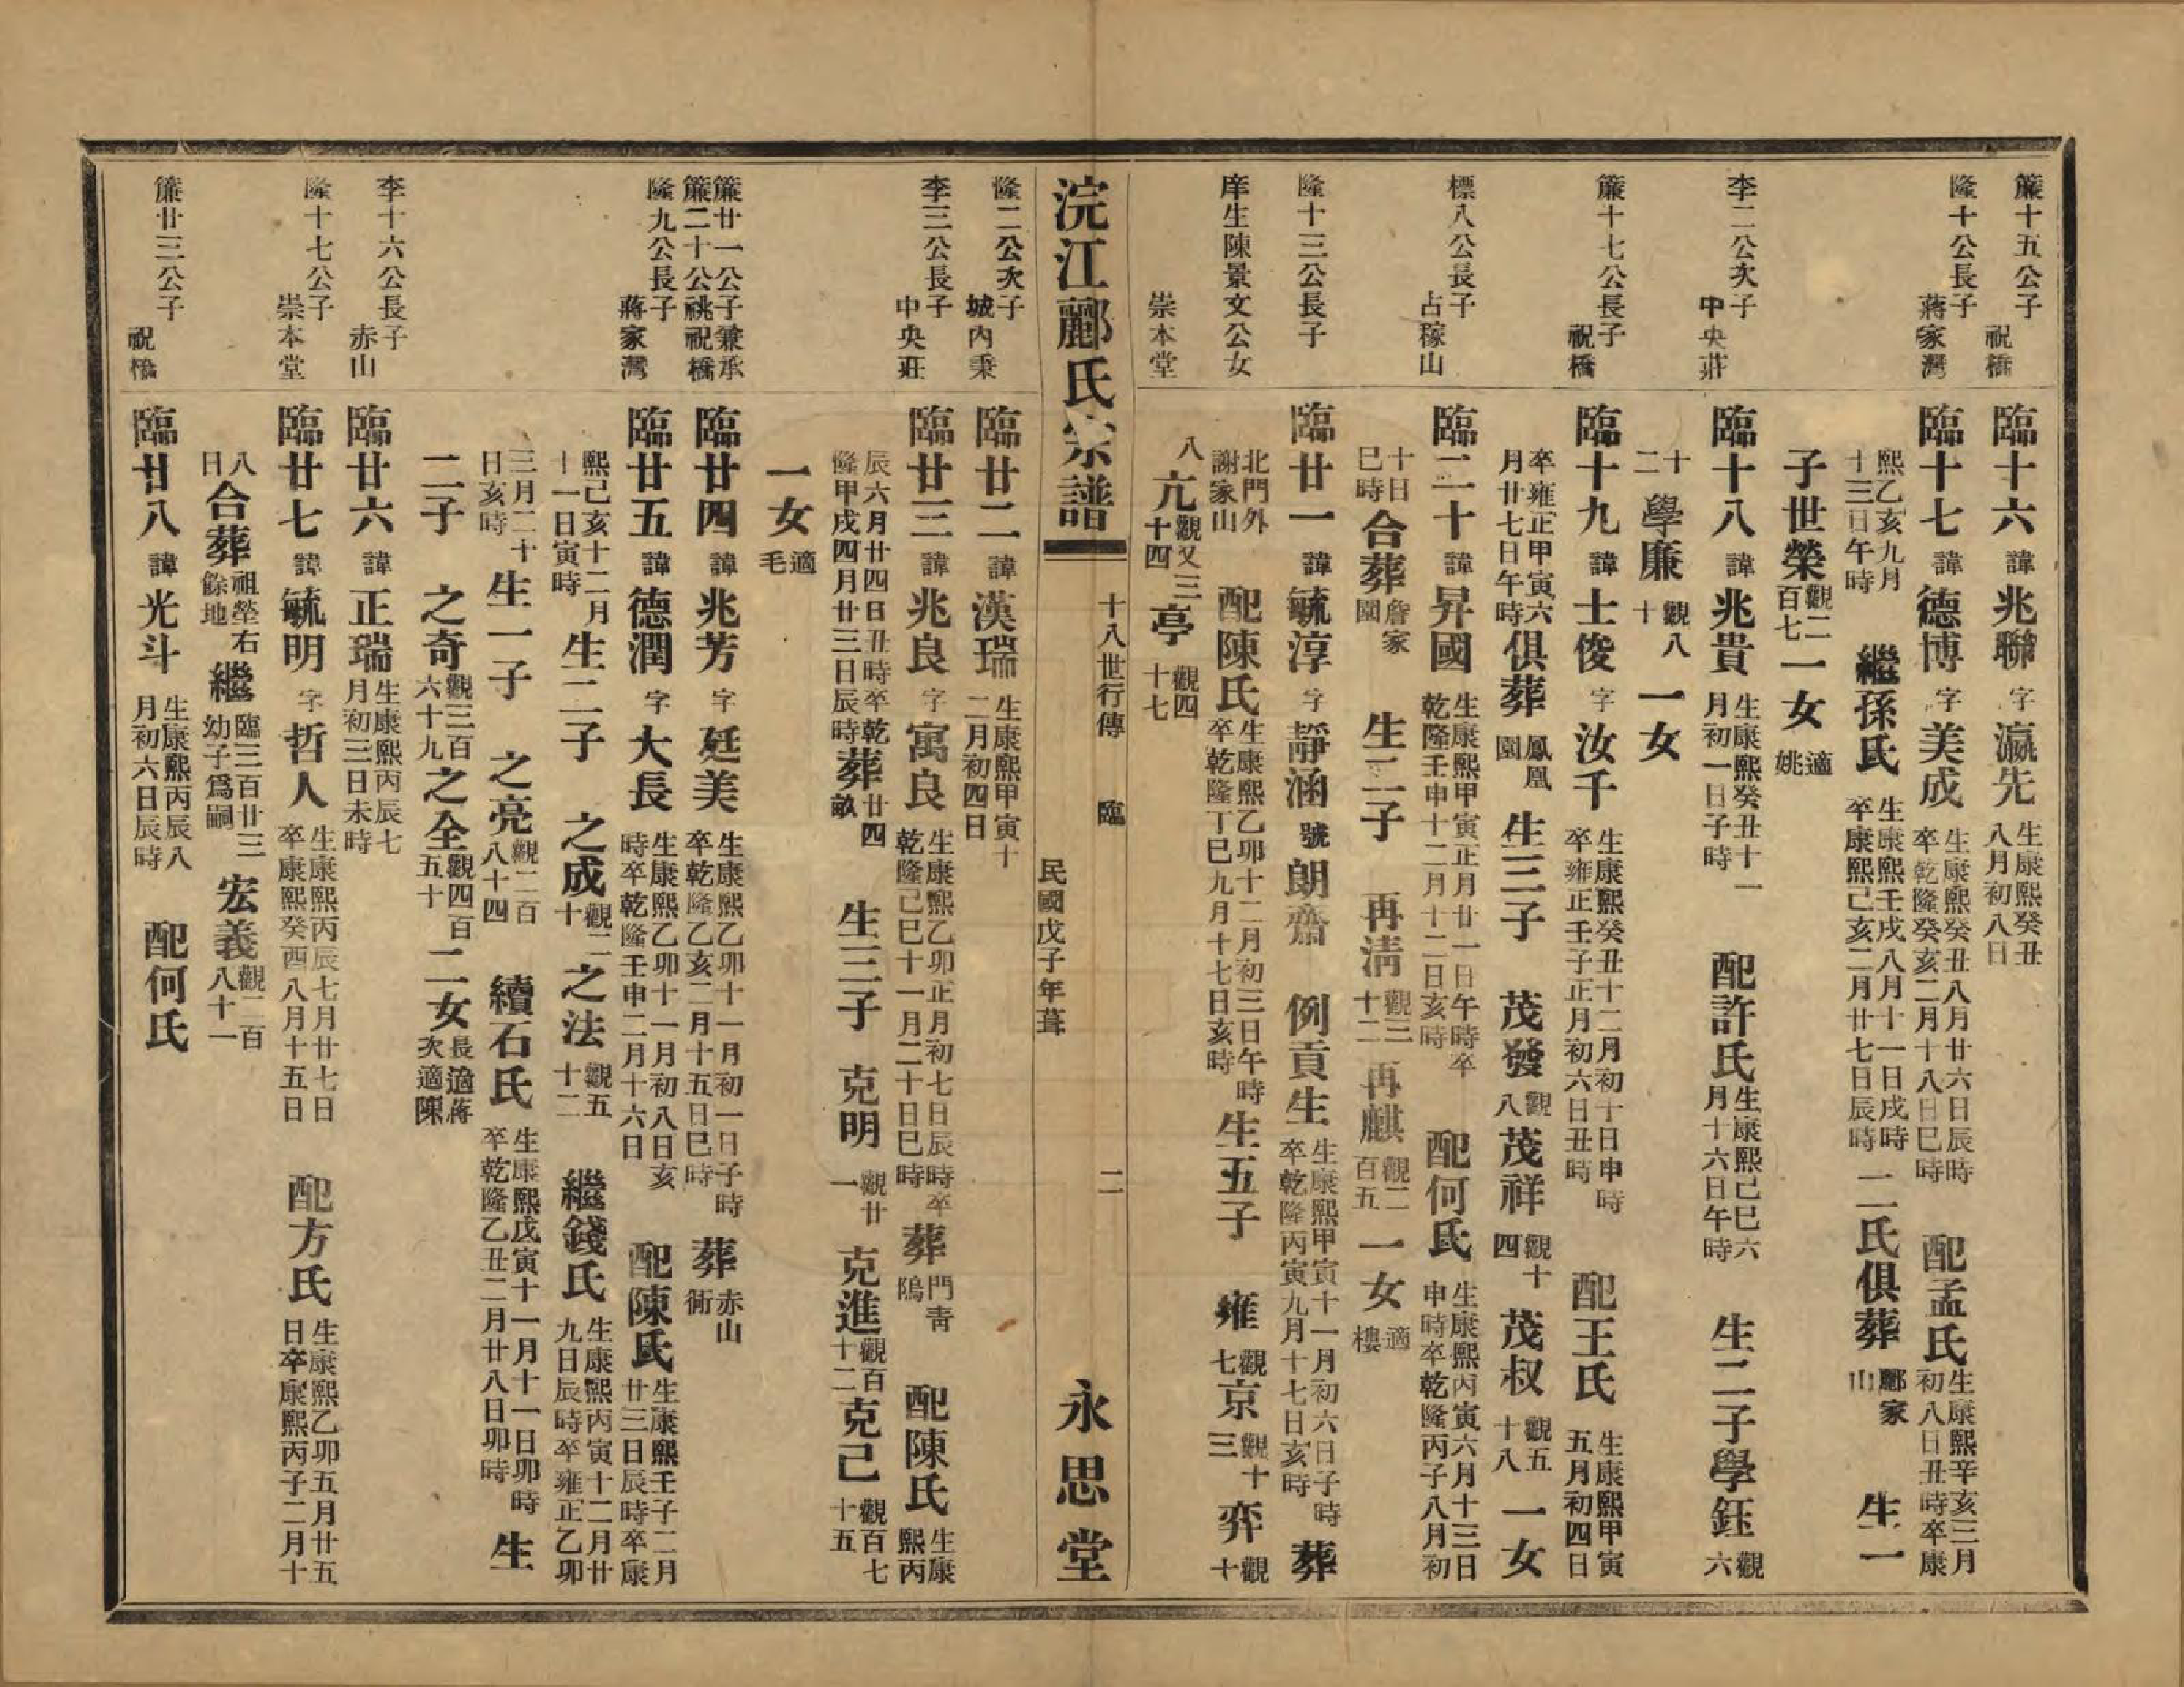 簾十五公子 祝橋 臨十六 諱 兆聯 字 瀛先 生康熙癸丑八月初八日
隆十公長子 蔣家灣 臨十七 諱 德博 字 美成 生康熙癸丑八月廿六日辰時卒乾隆癸亥二月十八日巳時 配孟氏 生康熙辛亥三月初八日丑時卒康
熙乙亥九月十三日午時 繼孫氏 生康熙壬戌八月十一日戌時卒康熙己亥二月廿七日辰時 二氏俱葬 酈家山 生一
子世榮 觀二百七 一女 適姚
李二公次子 中央莊 臨十八 諱 兆貴 生康熙癸丑十一月初一日子時 配許氏 生康熙己巳六月十六日午時 生二子學鈺 觀六
十二 學廉 觀八十 一女
簾十七公長子 祝橋 臨十九 諱 士俊 字 汝千 生康熙癸丑十二月初十日申時卒雍正壬子正月初六日丑時 配王氏 生康熙甲寅五月初四日
卒雍正甲寅六月廿七日午時 俱葬 鳳凰園 生三子 茂發 觀八 茂祥 觀十四 茂叔 觀五十八 一女
標八公長子 占稼山 臨二十 諱 昇國 生康熙甲寅正月廿一日午時卒乾隆壬申十二月十二日亥時 配何氏 生康熙丙寅六月十三日申時卒乾隆丙子八月初
十日巳時 合葬 詹家園 生二子 再淸 觀三十二 再麒 觀二百五 一女 適樓
隆十三公長子 臨廿一 諱 毓淳 字 靜涵 號 朗齋 例貢生 生康熙甲寅十一月初六日子時卒乾隆丙寅九月十七日亥時 葬
庠生陳景文公女 北門外謝家山 配陳氏 生康熙乙卯十二月初三日午時卒乾隆丁巳九月十七日亥時 生五子 雍 觀七 京 觀十三 弈 觀十
崇本堂 八 亢 觀又三十四 亭 觀四十七
浣江酈氏宗譜 十八世行傳 臨 二 民國戊子年葺 永思堂
隆二公次子 城內秉 臨廿二 諱 漢瑞 生康熙甲寅十二月初四日
李三公長子 中央莊 臨廿三 諱 兆良 字 寓良 生康熙乙卯正月初七日辰時卒乾隆己巳十一月二十日巳時 葬 門靑隖 配陳氏 生康熙丙
辰六月廿四日丑時卒乾隆甲戌四月廿三日辰時 葬 廿四畝 生三子 克明 觀廿一 克進 觀百十二 克己 觀百七十五
一女 適毛
簾廿一公子兼承簾二十公祧祝橋 臨廿四 諱 兆芳 字 廷美 生康熙乙卯十一月初一日子時卒乾隆乙亥二月十五日巳時 葬 赤山衕
隆九公長子 蔣家灣 臨廿五 諱 德潤 字 大長 生康熙乙卯十一月初八日亥時卒乾隆壬申二月十六日 配陳氏 生康熙壬子二月廿三日辰時卒康
熙己亥十二月十一日寅時 生二子 之成 觀二十 之法 觀五十二 繼錢氏 生康熙丙寅十二月廿九日辰時卒雍正乙卯
三月二十日亥時 生一子 之亮 觀二百八十四 續石氏 生康熙戊寅十一月十一日卯時卒乾隆乙丑二月廿八日卯時 生
二子 之奇 觀三百六十九 之全 觀四百五十 二女 長適蔣次適陳
李十六公長子 赤山 臨廿六 諱 正瑞 生康熙丙辰七月初三日未時
隆十七公子 崇本堂 臨廿七 諱 毓明 字 哲人 生康熙丙辰七月廿七日卒康熙癸酉八月十五日 配方氏 生康熙乙卯五月廿五日卒康熙丙子二月十
八日 合葬 祖塋右餘地 繼 臨三百廿三幼子爲嗣 宏義 觀二百八十一
簾廿三公子 祝橋 臨廿八 諱 光斗 生康熙丙辰八月初六日辰時 配何氏